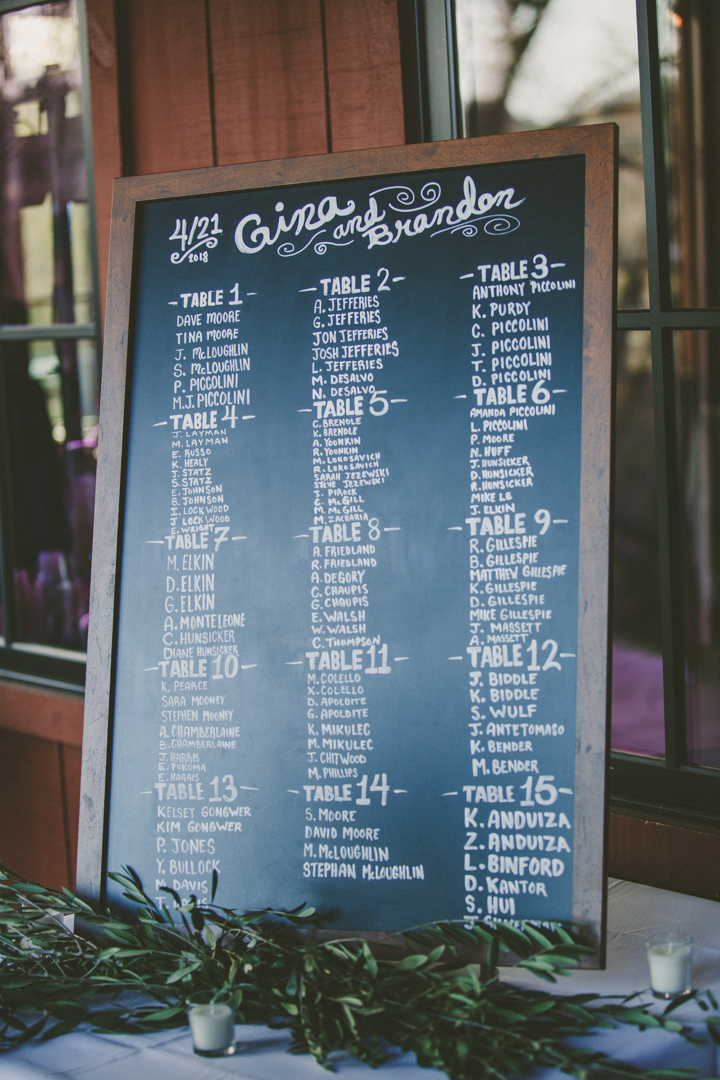 4/21
2018
Gina and Brandon
TABLE 1
DAVE MOORE
TINA MOORE
J. McLOUGHLIN
S. McLOUGHLIN
P. PICCOLINI
M.J. PICCOLINI
TABLE 2
A. JEFFERIES
G. JEFFERIES
JON JEFFERIES
JOSH JEFFERIES
L. JEFFERIES
M. DESALVO
N. DESALVO
TABLE 3
ANTHONY PICCOLINI
K. PURDY
C. PICCOLINI
J. PICCOLINI
T. PICCOLINI
D. PICCOLINI
TABLE 4
J. LAYMAN
M. LAYMAN
E. RUSSO
K. HEALY
J. STATZ
S. STATZ
E. JOHNSON
B. JOHNSON
I. LOCKWOOD
J. LOCKWOOD
E. WRIGHT
TABLE 5
C. BRENDLE
K. BRENDLE
A. YOUNKIN
R. YOUNKIN
M. LUKOSAVICH
R. LUKOSAVICH
SARAH JEZEWSKI
STEVE JEZEWSKI
J. PIROCK
C. McGILL
M. McGILL
M. ZACHARIA
TABLE 6
AMANDA PICCOLINI
L. PICCOLINI
P. MOORE
N. HUFF
J. HUNSICKER
D. HUNSICKER
R. HUNSICKER
MIKE LE
J. ELKIN
TABLE 7
M. ELKIN
D. ELKIN
G. ELKIN
A. MONTELEONE
C. HUNSICKER
DIANE HUNSICKER
TABLE 8
A. FRIEDLAND
R. FRIEDLAND
A. DEGORY
C. CHAUPIS
G. CHAUPIS
E. WALSH
W. WALSH
C. THOMPSON
TABLE 9
R. GILLESPIE
B. GILLESPIE
MATTHEW GILLESPIE
K. GILLESPIE
D. GILLESPIE
MIKE GILLESPIE
J. MASSETT
A. MASSETT
TABLE 10
K. PEARCE
SARA MOONEY
STEPHEN MOONEY
A. CHAMBERLAINE
B. CHAMBERLAINE
J. HARRIS
E. POKUMA
E. HARRIS
TABLE 11
M. COLELLO
X. COLELLO
D. APOLDITE
G. APOLDITE
K. MIKULEC
M. MIKULEC
J. CHITWOOD
M. PHILLIPS
TABLE 12
J. BIDDLE
K. BIDDLE
S. WULF
J. ANTETOMASO
K. BENDER
M. BENDER
TABLE 13
KELSEY GONGWER
KIM GONGWER
P. JONES
Y. BULLOCK
M. DAVIS
TABLE 14
S. MOORE
DAVID MOORE
M. McLOUGHLIN
STEPHAN McLOUGHLIN
TABLE 15
K. ANDUIZA
Z. ANDUIZA
L. BINFORD
D. KANTOR
S. HUI